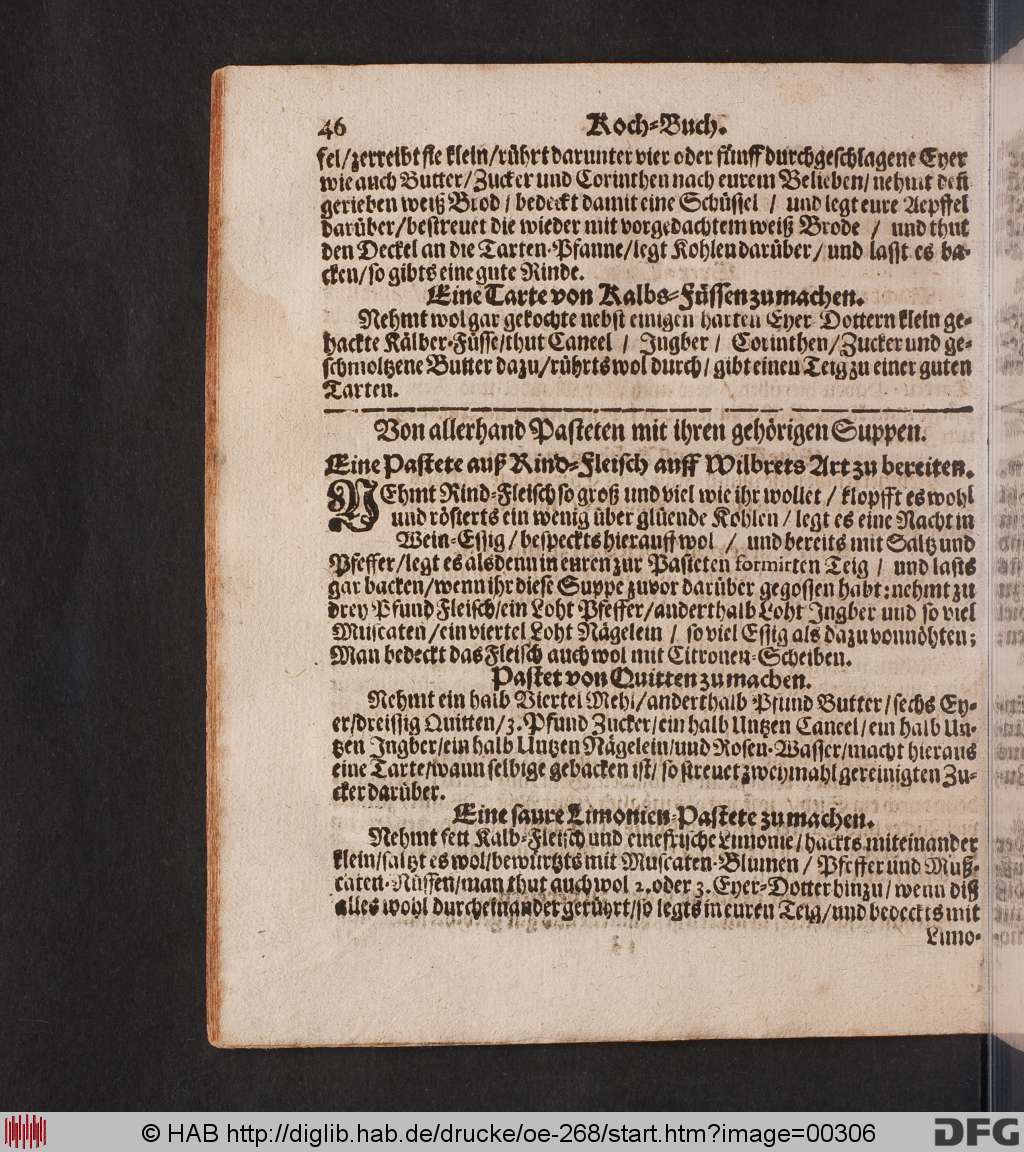 46 Koch-Buch.
fel/zerreibt sie klein/rührt darunter vier oder fünff durchgeschlagene Eyer
wie auch Butter/Zucker und Corinthen nach eurem Belieben/nehmt deñ
gerieben weiß Brod/bedeckt damit eine Schüssel/und legt eure Aepffel
darüber/bestreuet die wieder mit vorgedachtem weiß Brode/und thut
den Deckel an die Tarten-Pfanne/legt Kohlen darüber/und lasst es ba-
cken/so gibts eine gute Rinde.
Eine Tarte von Kalbs-Füssen zu machen.
Nehmt wol gar gekochte nebst einigen harten Eyer Dottern klein ge-
hackte Kälber-Füsse/thut Caneel/Ingber/Corinthen/Zucker und ge-
schmoltzene Butter dazu/rührts wol durch/gibt einen Teig zu einer guten
Tarten.
Von allerhand Pasteten mit ihren gehörigen Suppen.
Eine Pastete auß Rind-Fleisch auff Wilbrets Art zu bereiten.
NEhmt Rind-Fleisch so groß und viel wie ihr wollet/klopfft es wohl
und rösterts ein wenig über glüende Kohlen/legt es eine Nacht in
Wein-Essig/bespeckts hierauff wol/und bereits mit Saltz und
Pfeffer/legt es alsdenn in euren zur Pasteten formirten Teig/und lasts
gar backen/wenn ihr diese Suppe zuvor darüber gegossen habt: nehmt zu
drey Pfund Fleisch/ein Loht Pfeffer/anderthalb Loht Ingber und so viel
Muscaten/ein viertel Loht Nägelein/so viel Essig als dazu vonnöhten;
Man bedeckt das Fleisch auch wol mit Citronen-Scheiben.
Pastet von Quitten zu machen.
Nehmt ein halb Viertel Mehl/anderthalb Pfund Butter/sechs Ey-
er/dreissig Quitten/3. Pfund Zucker/ein halb Untzen Caneel/ein halb Un-
tzen Ingber/ein halb Untzen Nägelein/und Rosen-Wasser/macht hieraus
eine Tarte/wann selbige gebacken ist/so streuet zweymahl gereinigten Zu-
cker darüber.
Eine saure Limonien-Pastete zu machen.
Nehmt fett Kalb-Fleisch und eine frische Limonie/hackts miteinander
klein/saltzt es wol/bewürtzts mit Muscaten-Blumen/Pfeffer und Muß-
caten-Nüssen/man thut auch wol 2. oder 3. Eyer-Dotter hinzu/wenn diß
alles wohl durcheinander gerührt/so legts in euren Teig/und bedeckts mit
Limo-
© HAB http://diglib.hab.de/drucke/oe-268/start.htm?image=00306
DFG